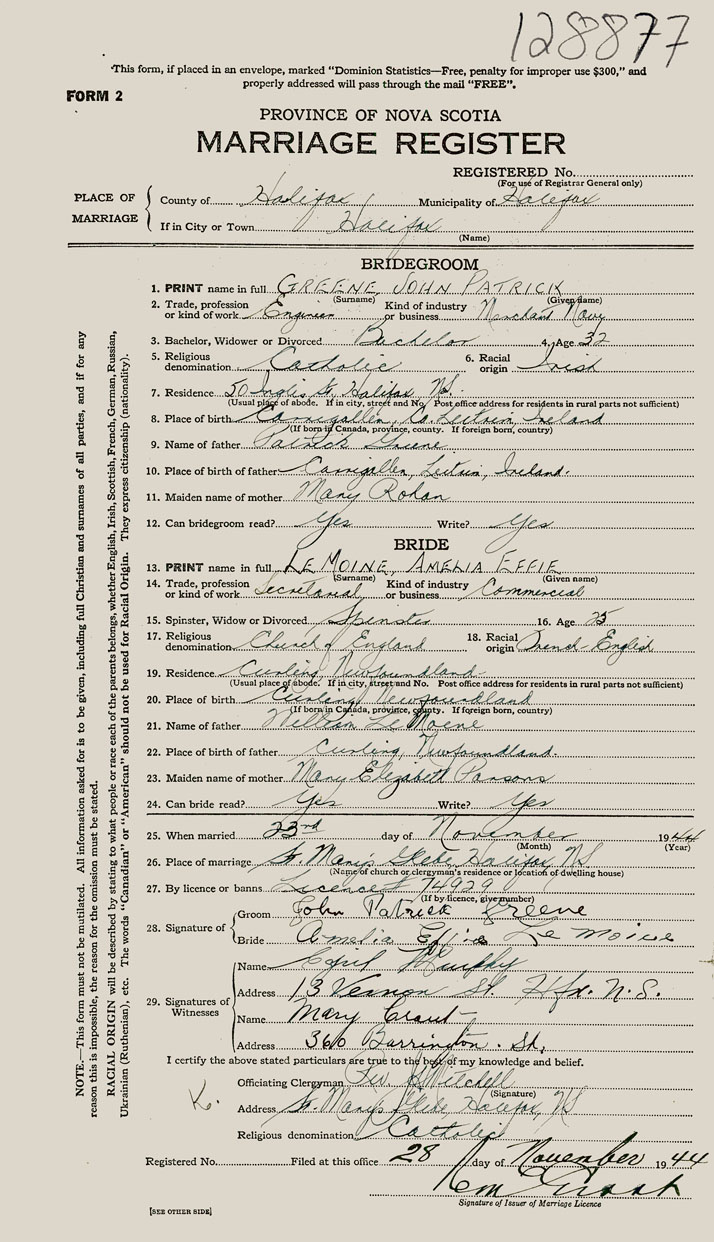 128877
This form, if placed in an envelope, marked "Dominion Statistics—Free, penalty for improper use $300," and
properly addressed will pass through the mail "FREE".
FORM 2
PROVINCE OF NOVA SCOTIA
MARRIAGE REGISTER
REGISTERED No.
(For use of Registrar General only)
PLACE OF MARRIAGE
County of Halifax Municipality of Halifax
If in City or Town Halifax
(Name)
BRIDEGROOM
1. PRINT name in full GREENE JOHN PATRICK
(Surname) (Given name)
2. Trade, profession or kind of work Engineer Kind of industry or business Merchant Navy
3. Bachelor, Widower or Divorced Bachelor 4. Age 32
5. Religious denomination Catholic 6. Racial origin Irish
7. Residence 50 Inglis St. Halifax N.S.
(Usual place of abode. If in city, street and No. Post office address for residents in rural parts not sufficient)
8. Place of birth Carrigallen, Co. Leitrim, Ireland
(If born in Canada, province, county. If foreign born, country)
9. Name of father Patrick Greene
10. Place of birth of father Carrigallen, Leitrim, Ireland.
11. Maiden name of mother Mary Rohan
12. Can bridegroom read? Yes Write? Yes
BRIDE
13. PRINT name in full LE MOINE, AMELIA EFFIE
(Surname) (Given name)
14. Trade, profession or kind of work Secretarial Kind of industry or business Commercial
15. Spinster, Widow or Divorced Spinster 16. Age 25
17. Religious denomination Church of England 18. Racial origin French-English
19. Residence Curling, Newfoundland
(Usual place of abode. If in city, street and No. Post office address for residents in rural parts not sufficient)
20. Place of birth Curling, Newfoundland
(If born in Canada, province, county. If foreign born, country)
21. Name of father William Le Moine
22. Place of birth of father Curling, Newfoundland.
23. Maiden name of mother Mary Elizabeth Parsons
24. Can bride read? Yes Write? Yes
25. When married 23rd day of November 1944
(Month) (Year)
26. Place of marriage St. Marys Glebe, Halifax, NS
(Name of church or clergyman's residence or location of dwelling house)
27. By licence or banns Licence # 74929
(If by licence, give number)
28. Signature of
Groom John Patrick Greene
Bride Amelia Effie Le Moine
29. Signatures of Witnesses
Name Murphy
Address 13 Vernon St. Hfx. N.S.
Name Mary
Address 360 Barrington St,
I certify the above stated particulars are true to the best of my knowledge and belief.
Officiating Clergyman Rev. Mitchell
(Signature)
K. Address St. Marys Glebe Halifax, NS
Religious denomination Catholic
Registered No. Filed at this office 28 day of November 1944
Signature of Issuer of Marriage Licence
[SEE OTHER SIDE]
NOTE.—This form must not be mutilated. All information asked for is to be given, including full Christian and surnames of all parties, and if for any
reason this is impossible, the reason for the omission must be stated.
RACIAL ORIGIN will be described by stating to what people or race each of the parents belongs, whether English, Irish, Scottish, French, German, Russian,
Ukrainian (Ruthenian), etc. The words "Canadian" or "American" should not be used for Racial Origin. They express citizenship (nationality).